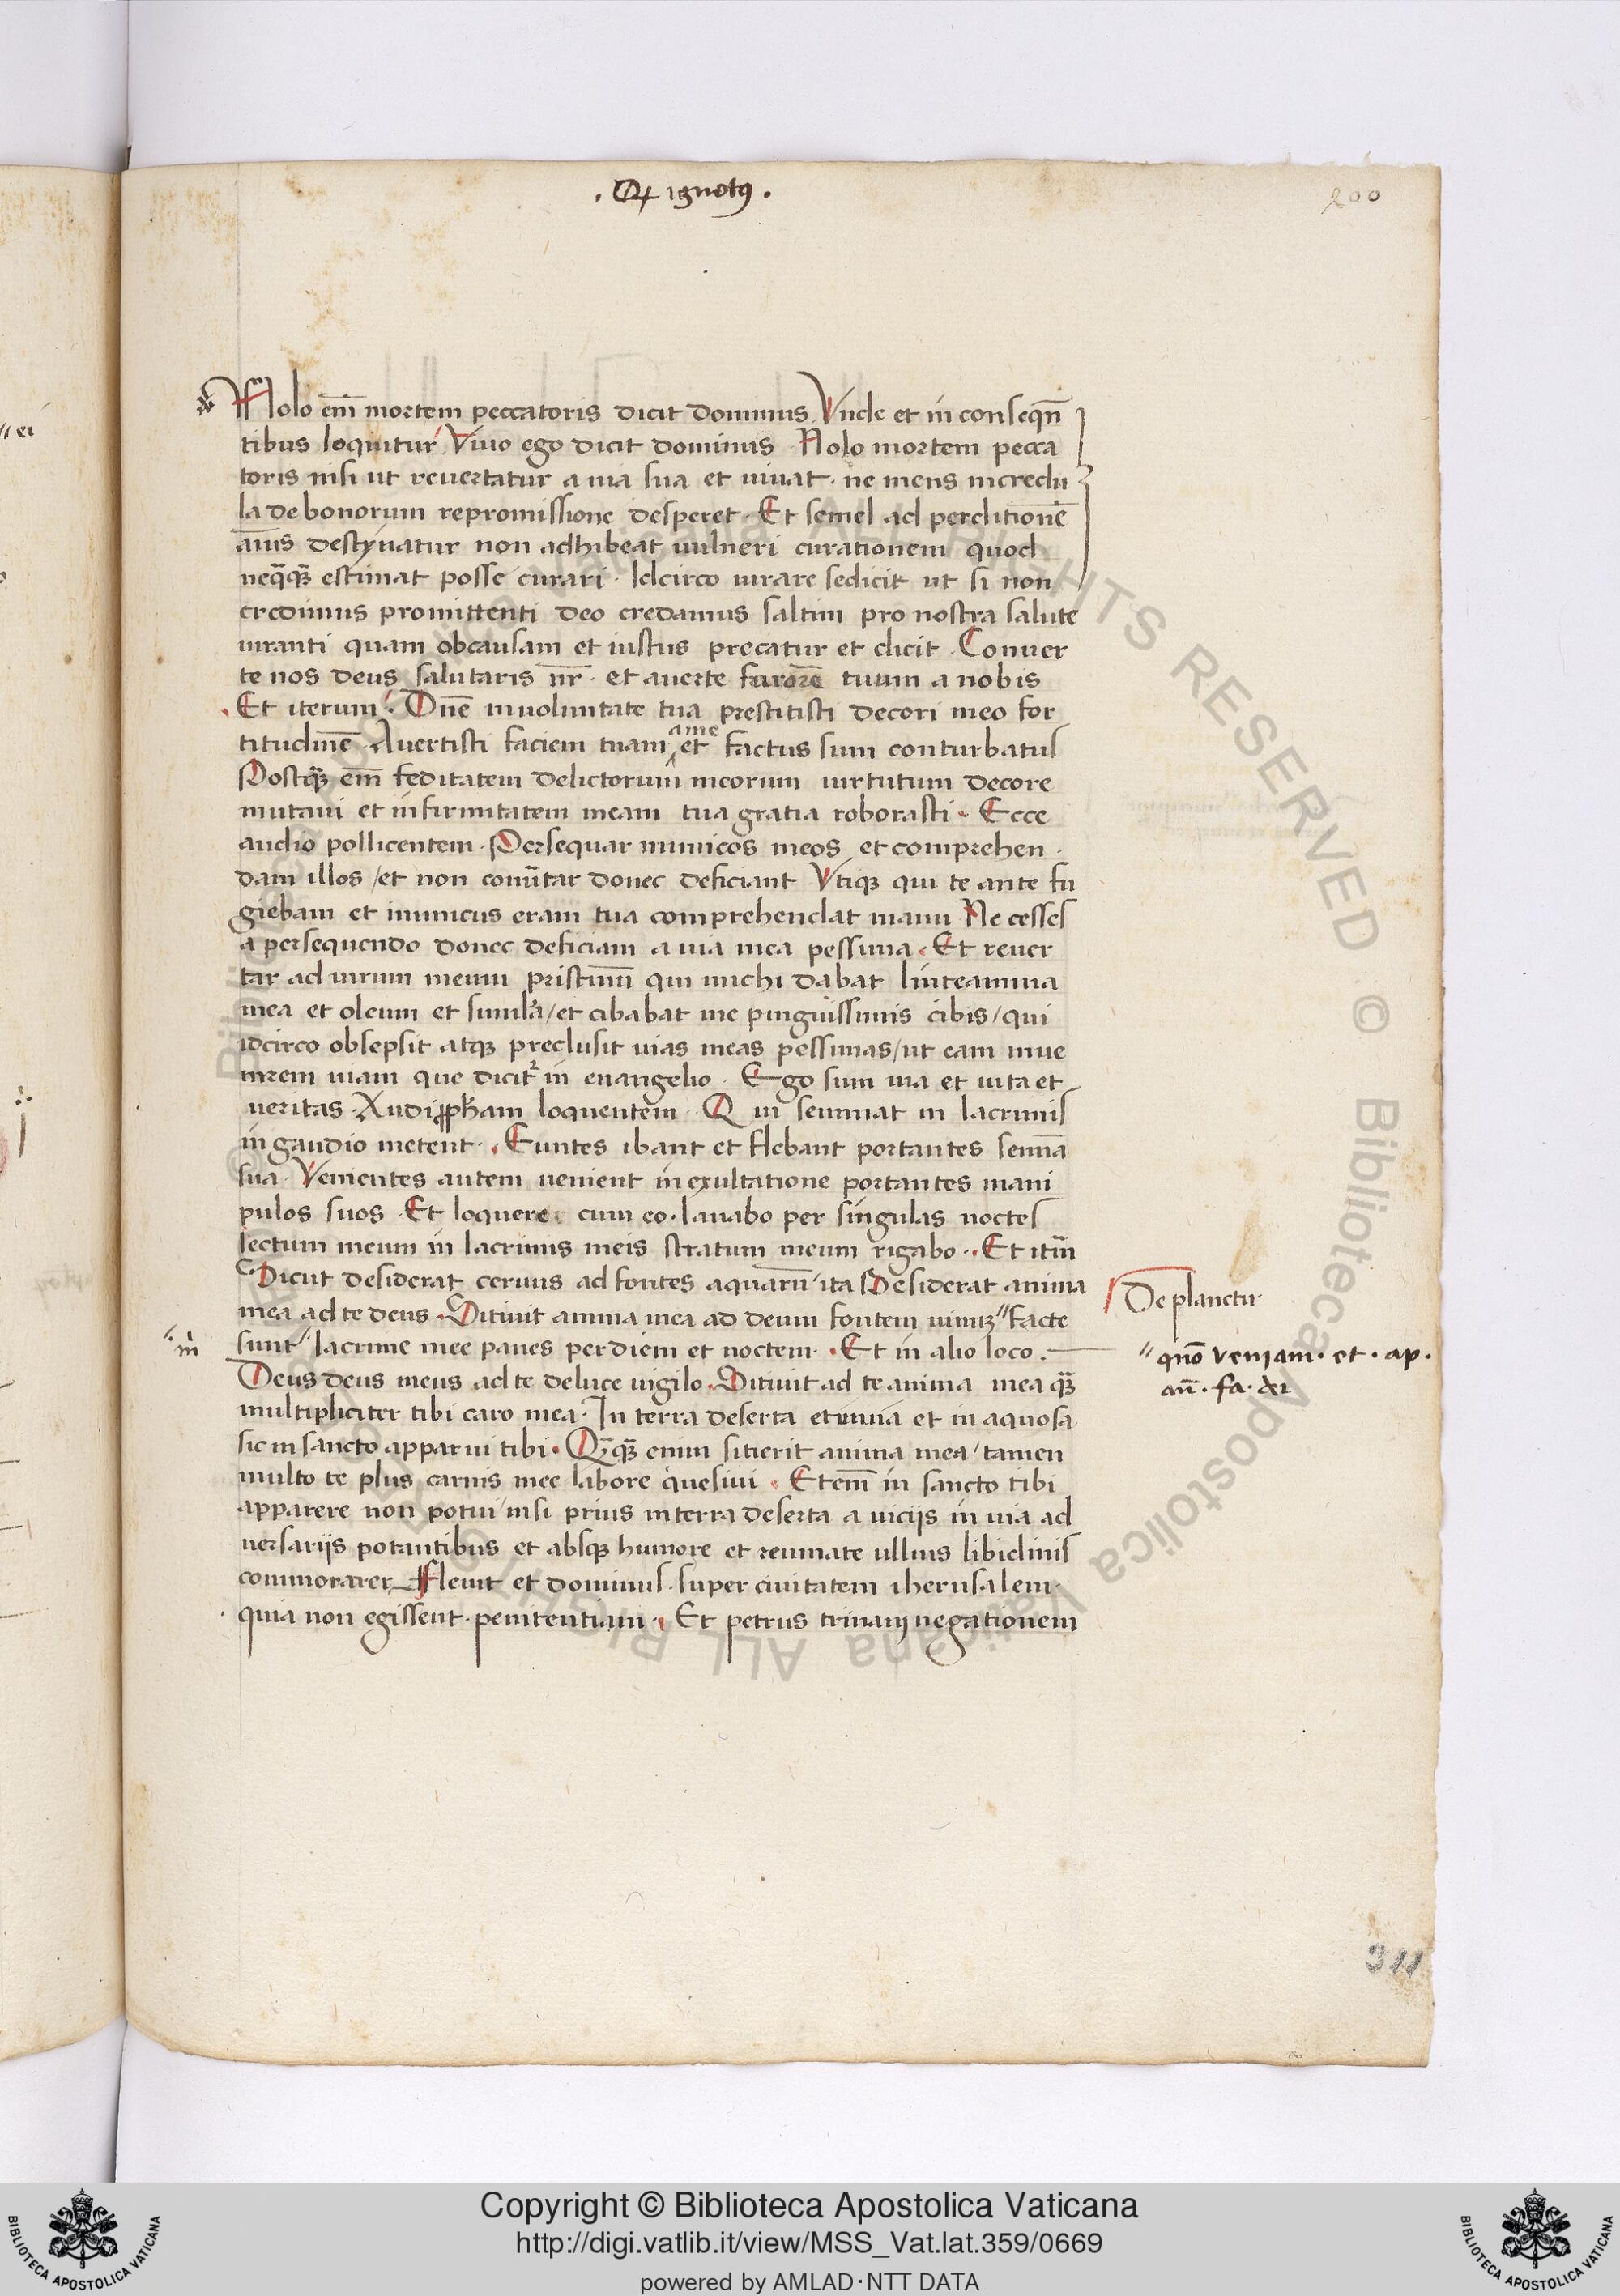 . Qr ignotus .
200
Nolo em̄ mortem peccatoris dicit dominus Vnde et in conseqn̄
tibus loquitur Viuo ego dicit dominus Nolo mortem pecca
toris nisi ut reuertatur a uia sua et uiuat · ne mens incredu
la de bonorum repromissione desperet · Et semel ad perditionē
anīs destynatur non adhibeat uulneri curationem quod
neq̄q̄ estimat posse curari · Idcirco iurare sedicit ut si non
credimus promittenti deo credamus saltim pro nostra salute
iuranti quam obcausam et iustus precatur et dicit · Conuer
te nos deus salutaris nr̄ · et auerte furorē tuum a nobis
Et iterum · Dn̄e in uoluntate tua prestitisti decori meo for
titudinē · Auertisti faciem tuam a me et factus sum conturbatus
Postq̄ em̄ feditatem delictorum meorum uirtutum decore
mutaui et infirmitatem meam tua gratia roborasti · Ecce
audio pollicentem · Persequar inimicos meos et comprehen ·
dam illos / et non conūtar donec deficiant Vtiqꝫ qui te ante fu
giebam et inimicus eram tua comprehendat manu Ne cesses
a persequendo donec deficiam a uia mea pessima · Et reuer
tar ad uirum meum pristinū qui michi dabat linteamina
mea et oleum et similā / et cibabat me pinguissimis cibis / qui
idcirco obsepsit atqꝫ preclusit uias meas pessimas / ut eam inue
nirem uiam que dicit᷑ in euangelio · Ego sum uia et uita et
ueritas · Audi ꝓpħam loquentem · Qui seminat in lacrimis
in gaudio metent · Euntes ibant et flebant portantes semīa
sua · Venientes autem uenient in exultatione portantes mani
pulos suos · Et loquere cum eo · lauabo per singulas noctes
lectum meum in lacrimis meis stratum meum rigabo · Et itm̄
Sicut desiderat ceruus ad fontes aquarū / ita desiderat anima
mea ad te deus · Sitiuit anima mea ad deum fontem uiuuꝫ " facte
sunt " lacrime mee panes per diem et noctem · Et in alio loco .
Deus deus meus ad te de luce uigilo · Sitiuit ad te anima mea q̄
multipliciter tibi caro mea · In terra deserta et inuia et in aquosa
sic in sancto apparui tibi · Q̄q̄ enim sitierit anima mea / tamen
multo te plus carnis mee labore quesiui · Etem̄ in sancto tibi
apparere non potui / nisi prius in terra deserta a uicijs in uia ad
uersarijs potantibus et absqꝫ humore et reumate ullius libidinis
commorarer Fleuit et dominus · super ciuitatem iherusalem ·
quia non egissent · penitentiam · Et petrus trinam negationem
De planctu
" quō veniam · et · ap ·
an̄ · fa · dei
m̄
311
Copyright © Biblioteca Apostolica Vaticana
http://digi.vatlib.it/view/MSS_Vat.lat.359/0669
powered by AMLAD·NTT DATA
BIBLIOTECA APOSTOLICA VATICANA
BIBLIOTECA APOSTOLICA VATICANA